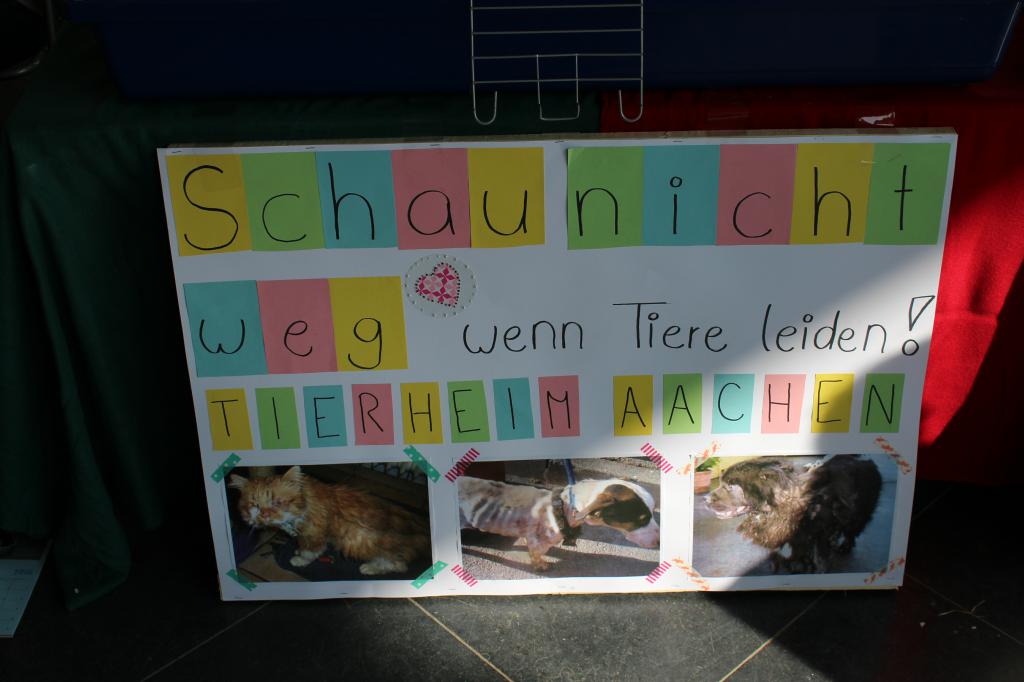 Schau nicht
weg wenn Tiere leiden!
TIERHEIM AACHEN